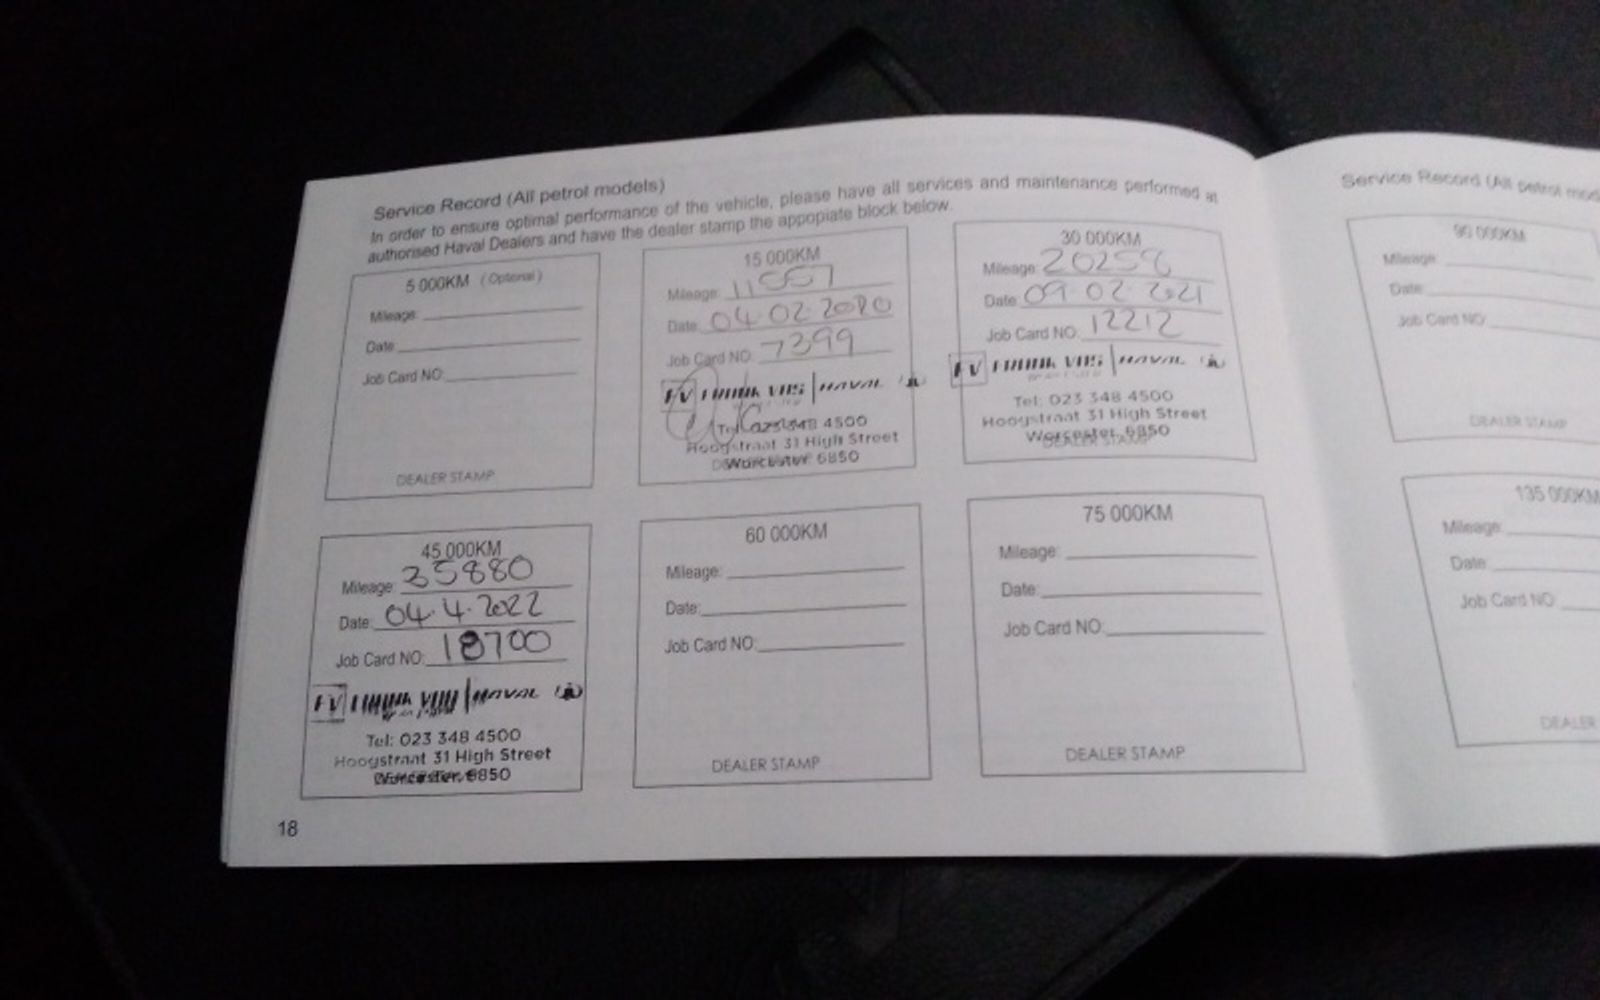 Service Record (All petrol models)
In order to ensure optimal performance of the vehicle, please have all services and maintenance performed at
authorised Haval Dealers and have the dealer stamp the appopiate block below.
5 000KM (Optional)
Mileage:
Date:
Job Card NO:
DEALER STAMP
15 000KM
Mileage: 11557
Date: 04.02.2020
Job Card NO: 7399
FV HAVAL
Tel: 023 348 4500
Hoogstraat 31 High Street
Worcester 6850
30 000KM
Mileage: 20258
Date: 09.02.2021
Job Card NO: 12212
FV HAVAL
Tel: 023 348 4500
Hoogstraat 31 High Street
Worcester, 6850
DEALER STAMP
45 000KM
Mileage: 35880
Date: 04.4.2022
Job Card NO: 18700
FV HAVAL
Tel: 023 348 4500
Hoogstraat 31 High Street
Worcester, 6850
60 000KM
Mileage:
Date:
Job Card NO:
DEALER STAMP
75 000KM
Mileage:
Date:
Job Card NO:
DEALER STAMP
18
Service Record (All petrol
90 000KM
Mileage:
Date:
Job Card NO:
DEALER STAMP
135 000KM
Mileage:
Date:
Job Card NO:
DEALER